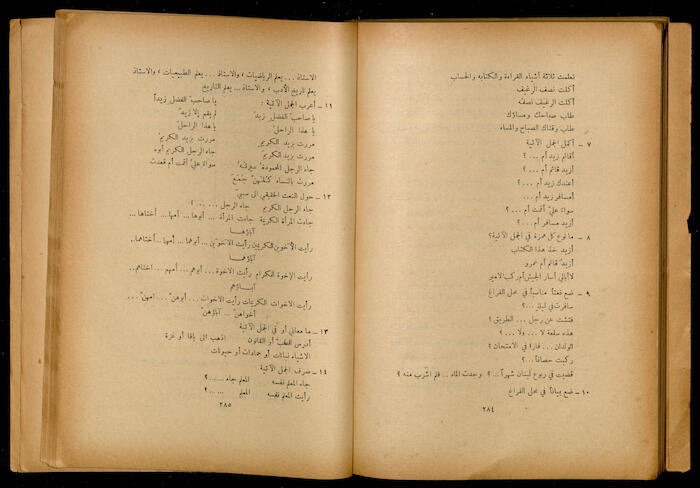 تعلمت ثلاثة أشياء القراءة والكتابه والحساب
أكلت نصف الرغيف
أكلت الرغيف نصفه
طاب صباحك ومساؤك
طاب وقتاك الصباح والمساء
٧ – أكمل الجمل الآتية
أقائم زيد أم ... ؟
أزيد قائم أم ... ؟
أعندك زيد أم ... ؟
أمسافر زيد أم ...
سواءٌ عليّ أقمت أم ... ؟
أزيد مسافر أم ... ؟
٨ – ما نوع كل همزة في الجمل الآتية؟
أزيد خذ هذا الكتاب
أزيدٌ قائم أم عمرو
لا أبالي أسار الجيش أم ركب الامير
٩ – ضع نعتاً مناسباً في محل الفراغ
سافرت في ليلةٍ ...؟
فتشت عن رجل ... الطريق ؟
هذه سلعة لا ... ولا ... ؟
الولدان ... فازا في الامتحان ؟
ركبت حصاناً ...؟
قضيت في ربوع لبنان شهراً ... ؟ وجدت الماء ... فلم اشرب منه ؟
١٠ – ضع بياناً في محل الفراغ
٢٨٤
الاستاذ ... يعلم الرياضيات ، والاستاذ ... يعلم الطبيعيات ، والاستاذ
يعلم تاريخ الأدب ، والاستاذ ... يعلم التاريخ
١١ – أعرب الجمل الآتية : يا صاحب الفضل زيداً
يا صاحب الفضل زيد لم يقم إلا زيد
يا هذا الراحل يا هذا الراحل
مررت بزيد الكريم مررت بزيد الكريم
مررت بزيد الكريم جاء الرجل الكريم أبوه
جاء الرجل المحمودة سواءٌ عليّ أقمت أم قعدت
مررت بالنساء كلهن جُمَعَ
١٢ – حول النعت الحقيقي الى سببيّ
جاء الرجل الكريم جاء الرجل ... ... ؟
جاءت المرأة الكريمة جاءت المرأة ... أبوها ... أمها ... أختاها ..
آباؤهما
رأيت الأخوين الكريمين رأيت الاخوين ... أبوهما ... أمها ... أختاهما ..
آباؤهما
رأيت الإخوة الكرام رأيت الاخوة ... أبوهم ... أمهم ... اختاهم ...
آباؤهم
رأيت الاخوات الكريمات رأيت الاخوات ... أبوهنّ ... امهنّ ...
أخواهنّ ... آباؤهن
١٣ – ما معاني أو في الجمل الآتية
أدرس الطبّ أو القانون اذهب الى يافا أو غزة
الاشياء نباتات أو جمادات أو حيوانات
١٤ – صرف الجمل الآتية
جاء المعلم نفسه المعلم جاء ... ... ؟
رأيت المعلم نفسه المعلم ... ... ؟
٢٨٥